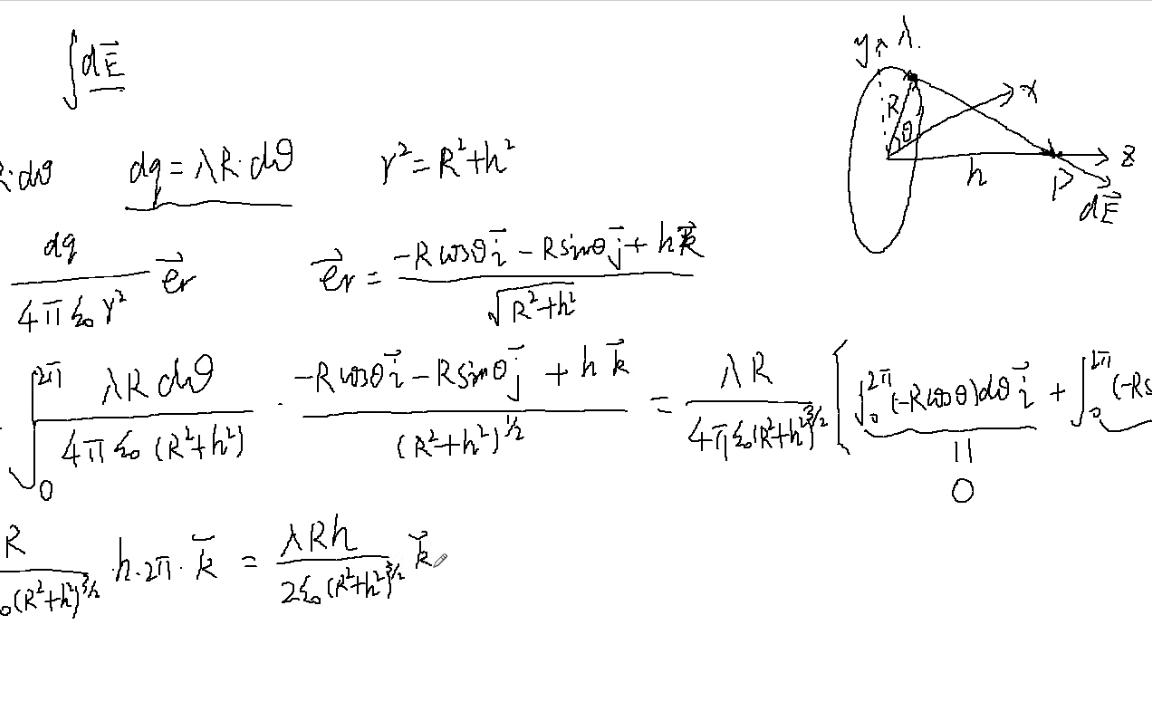 ∫dE⃗
R·dθ dq = λR·dθ r² = R²+h²
dq/(4πε₀r²) e⃗r e⃗r = (-Rcosθ i⃗ - Rsinθ j⃗ + h k⃗)/√(R²+h²)
∫₀^2π λR dθ/(4πε₀(R²+h²)) · (-Rcosθ i⃗ - Rsinθ j⃗ + h k⃗)/(R²+h²)^1/2 = λR/(4πε₀(R²+h²)^3/2) [∫₀^2π (-Rcosθ)dθ i⃗ + ∫₀^2π (-Rs
||
0
R/(₀(R²+h²)^3/2) · h·2π· k⃗ = λRh/(2ε₀(R²+h²)^3/2) k⃗
y λ
R θ x
h P z
dE⃗